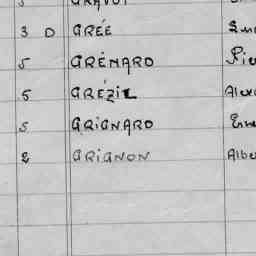 GRAVOT
3 D GRÉE
5 GRÉNARD
5 GRÉZIL Alex
5 GRIGNARD
2 GRIGNON Albe